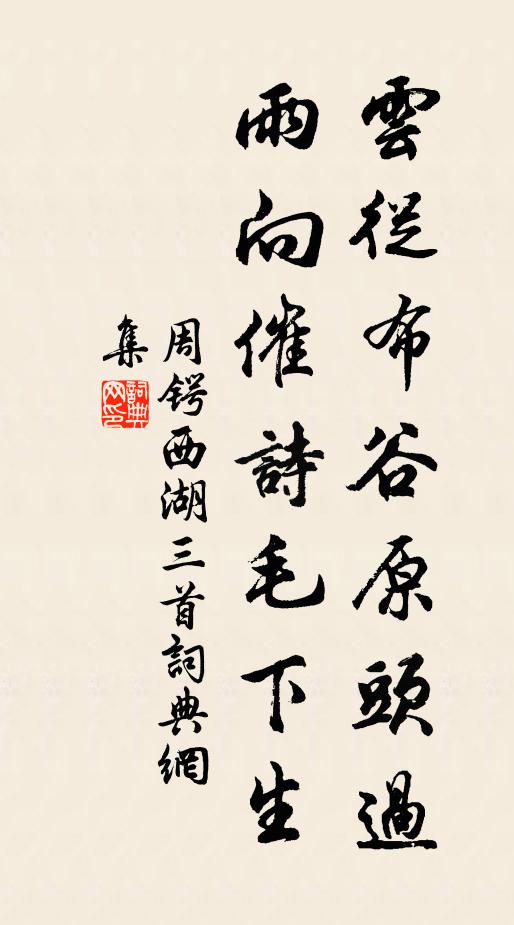 雲從布谷原頭過
雨向催詩毛下生
周鍔西湖三首詞典網
集
詞典
网印